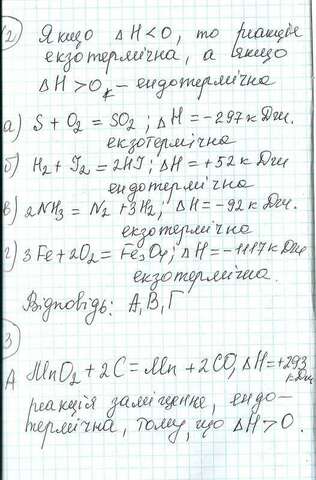 2. Якщо ΔH<0, то реакція
екзотермічна, а якщо
ΔH>0, – ендотермічна
а) S + O₂ = SO₂; ΔH = -297 кДж.
екзотермічна
б) H₂ + I₂ = 2HI; ΔH = +52 кДж
ендотермічна
в) 2NH₃ = N₂ + 3H₂; ΔH = -92 кДж.
екзотермічна
г) 3Fe + 2O₂ = Fe₃O₄; ΔH = -1117 кДж
екзотермічна.
Відповідь: А, В, Г
3
А MnO₂ + 2C = Mn + 2CO, ΔH = +293
кДж
реакція заміщення, ендо-
термічна, тому, що ΔH>0.